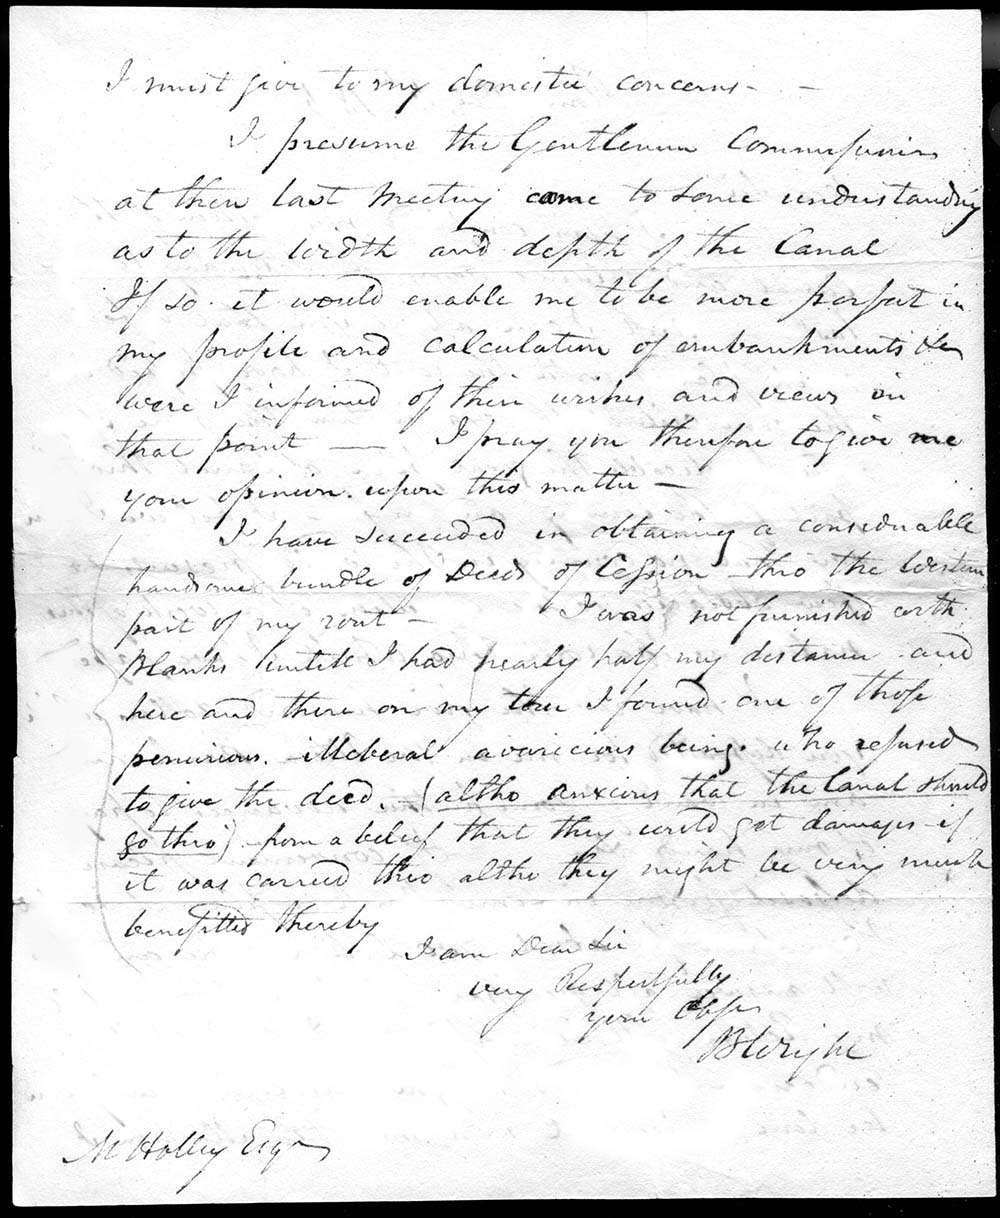 I must give to my domestic concerns - -
I presume the Gentlemen Commissioners
at their last meeting came to some understanding
as to the width and depth of the Canal
If so it would enable me to be more perfect in
my profile and calculation of embankments &c
were I informed of their wishes and views on
that point — I pray you therefore to give me
your opinion upon this matter —
I have succeeded in obtaining a considerable
handsome bundle of Deeds of Cession thro the Western
part of my rout - I was not furnished with
Blanks untill I had nearly half my distance and
here and there on my tour I found one of those
penurious illeberal avaricious beings who refused
to give the deed. - (altho anxious that the Canal should
go thro) from a belief that they could get damages if
it was carried thro altho they might be very much
benefitted thereby
I am Dear Sir
very Respectfully
your Obt
B Wright
M Holley Esqr